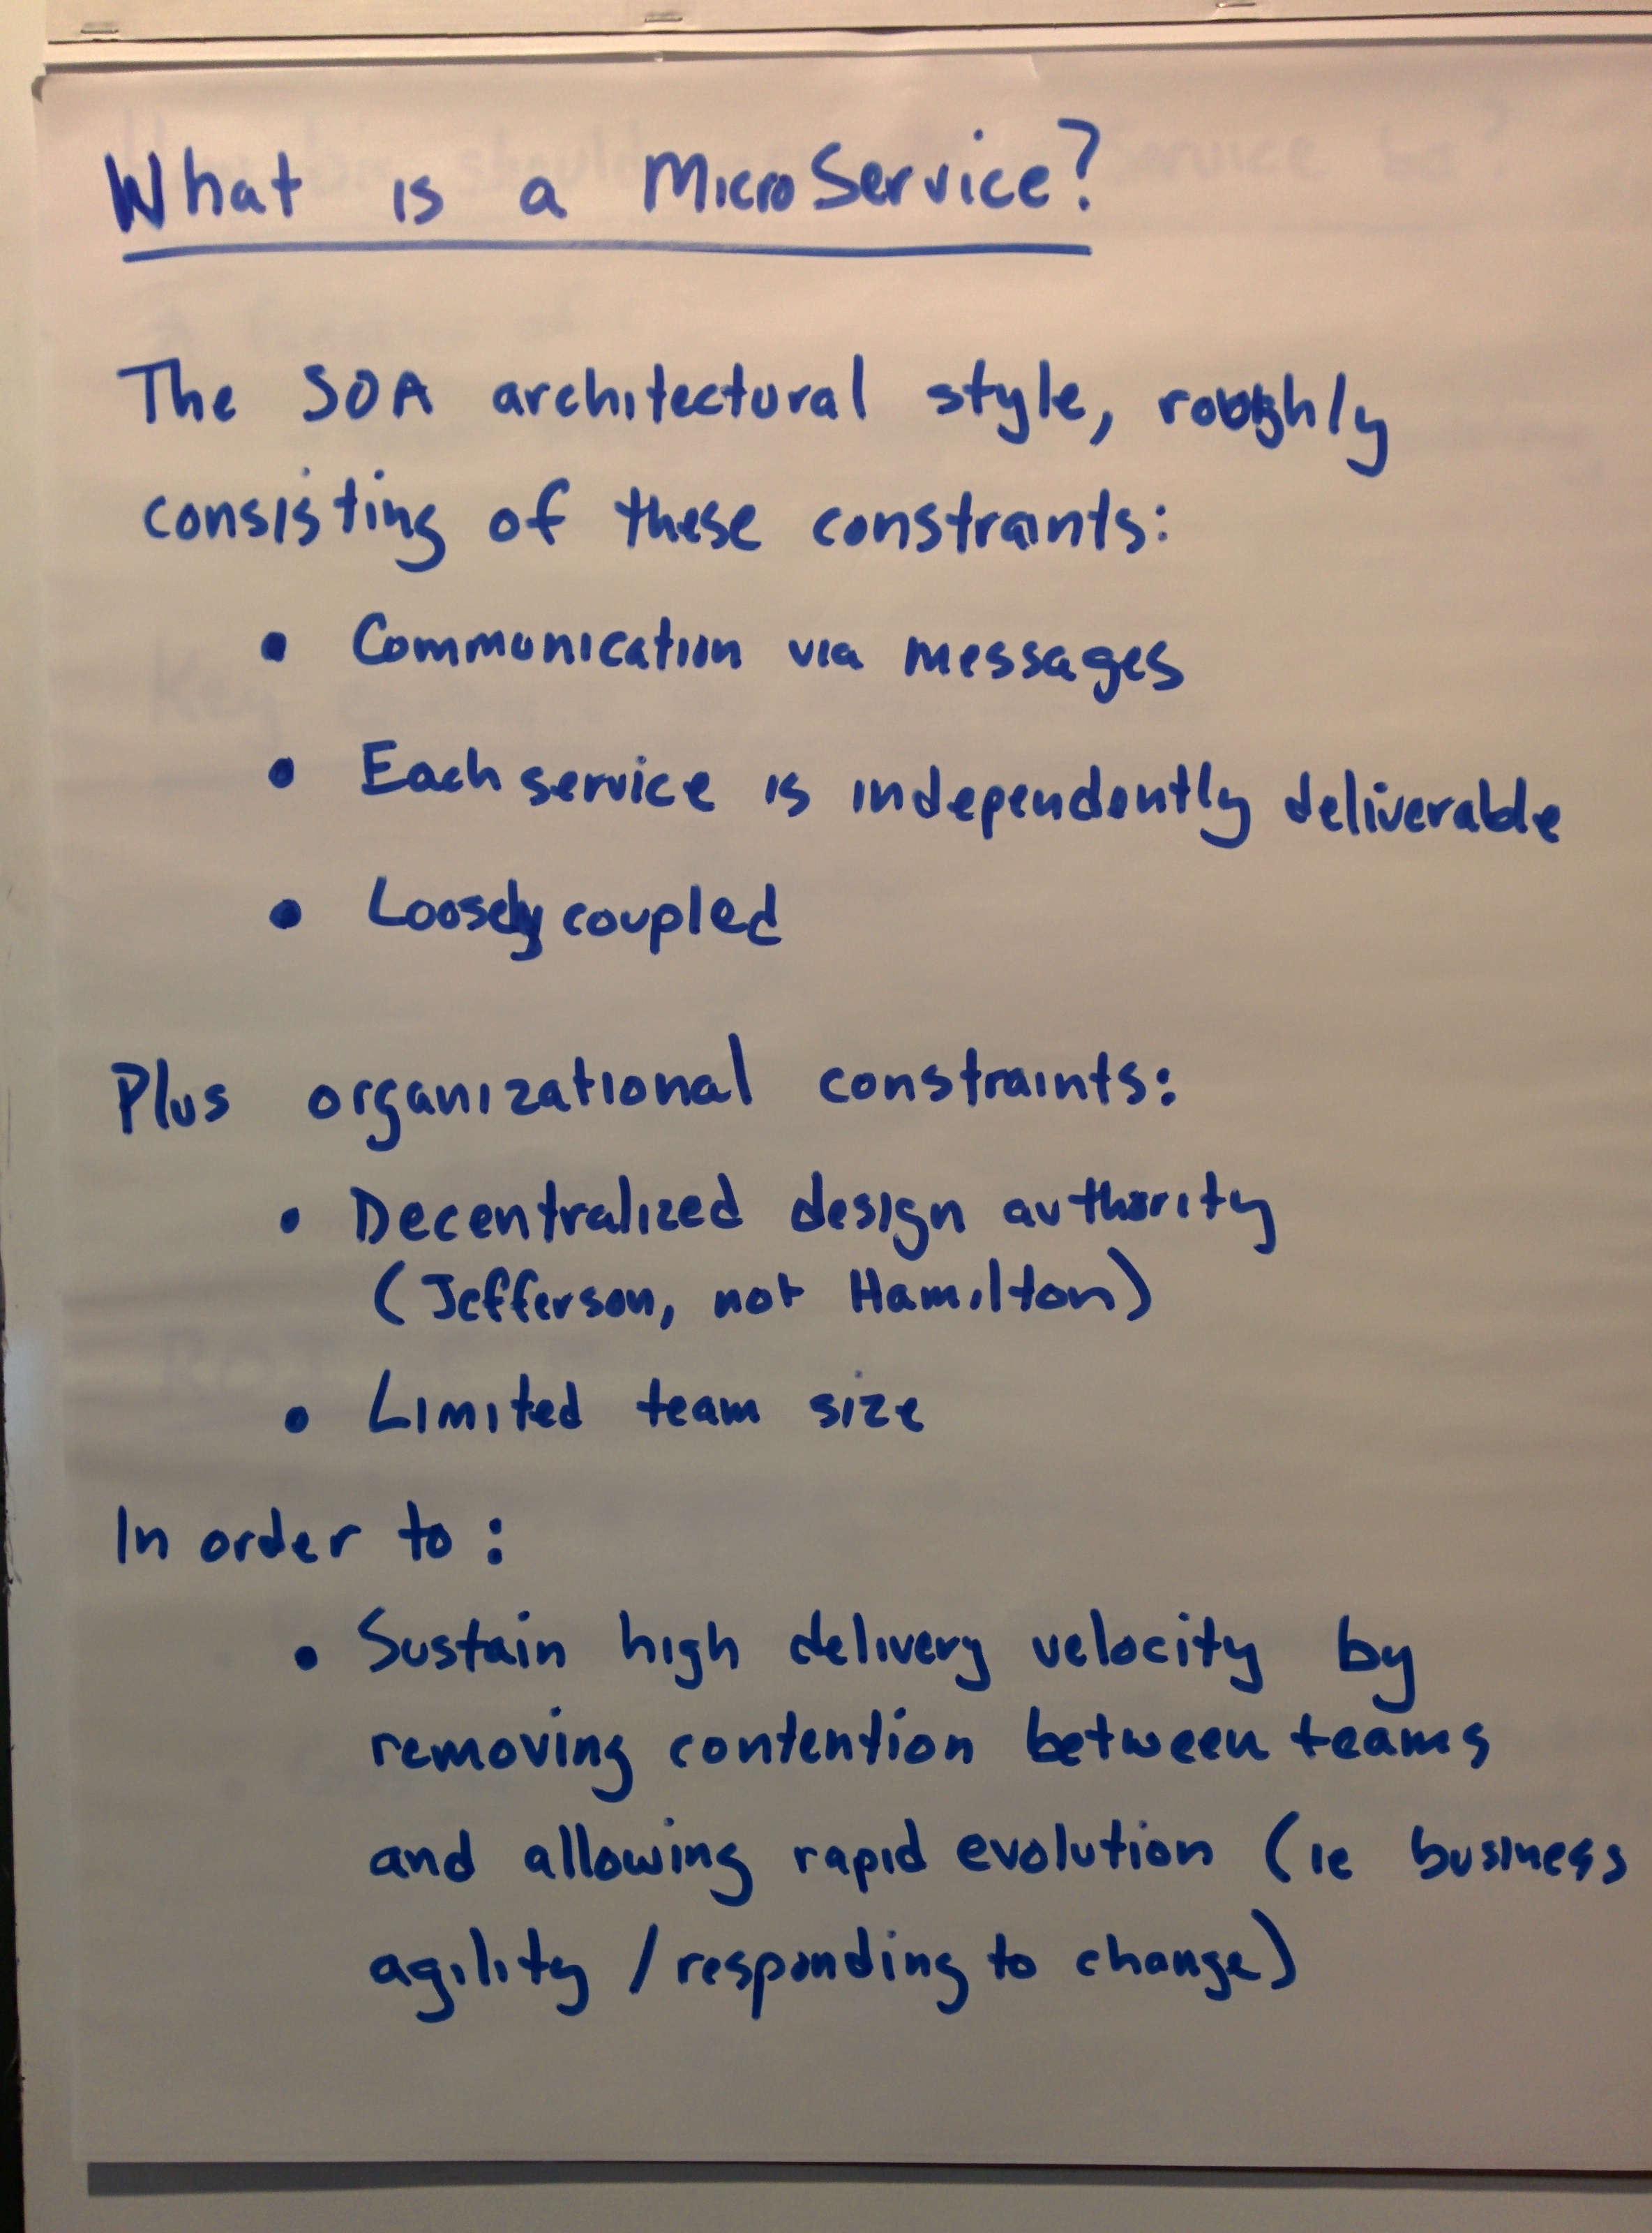 What is a MicroService?
The SOA architectural style, roughly
consisting of these constraints:
• Communication via messages
• Each service is independently deliverable
• Loosely coupled
Plus organizational constraints:
• Decentralized design authority
(Jefferson, not Hamilton)
• Limited team size
In order to:
• Sustain high delivery velocity by
removing contention between teams
and allowing rapid evolution (ie business
agility / responding to change)